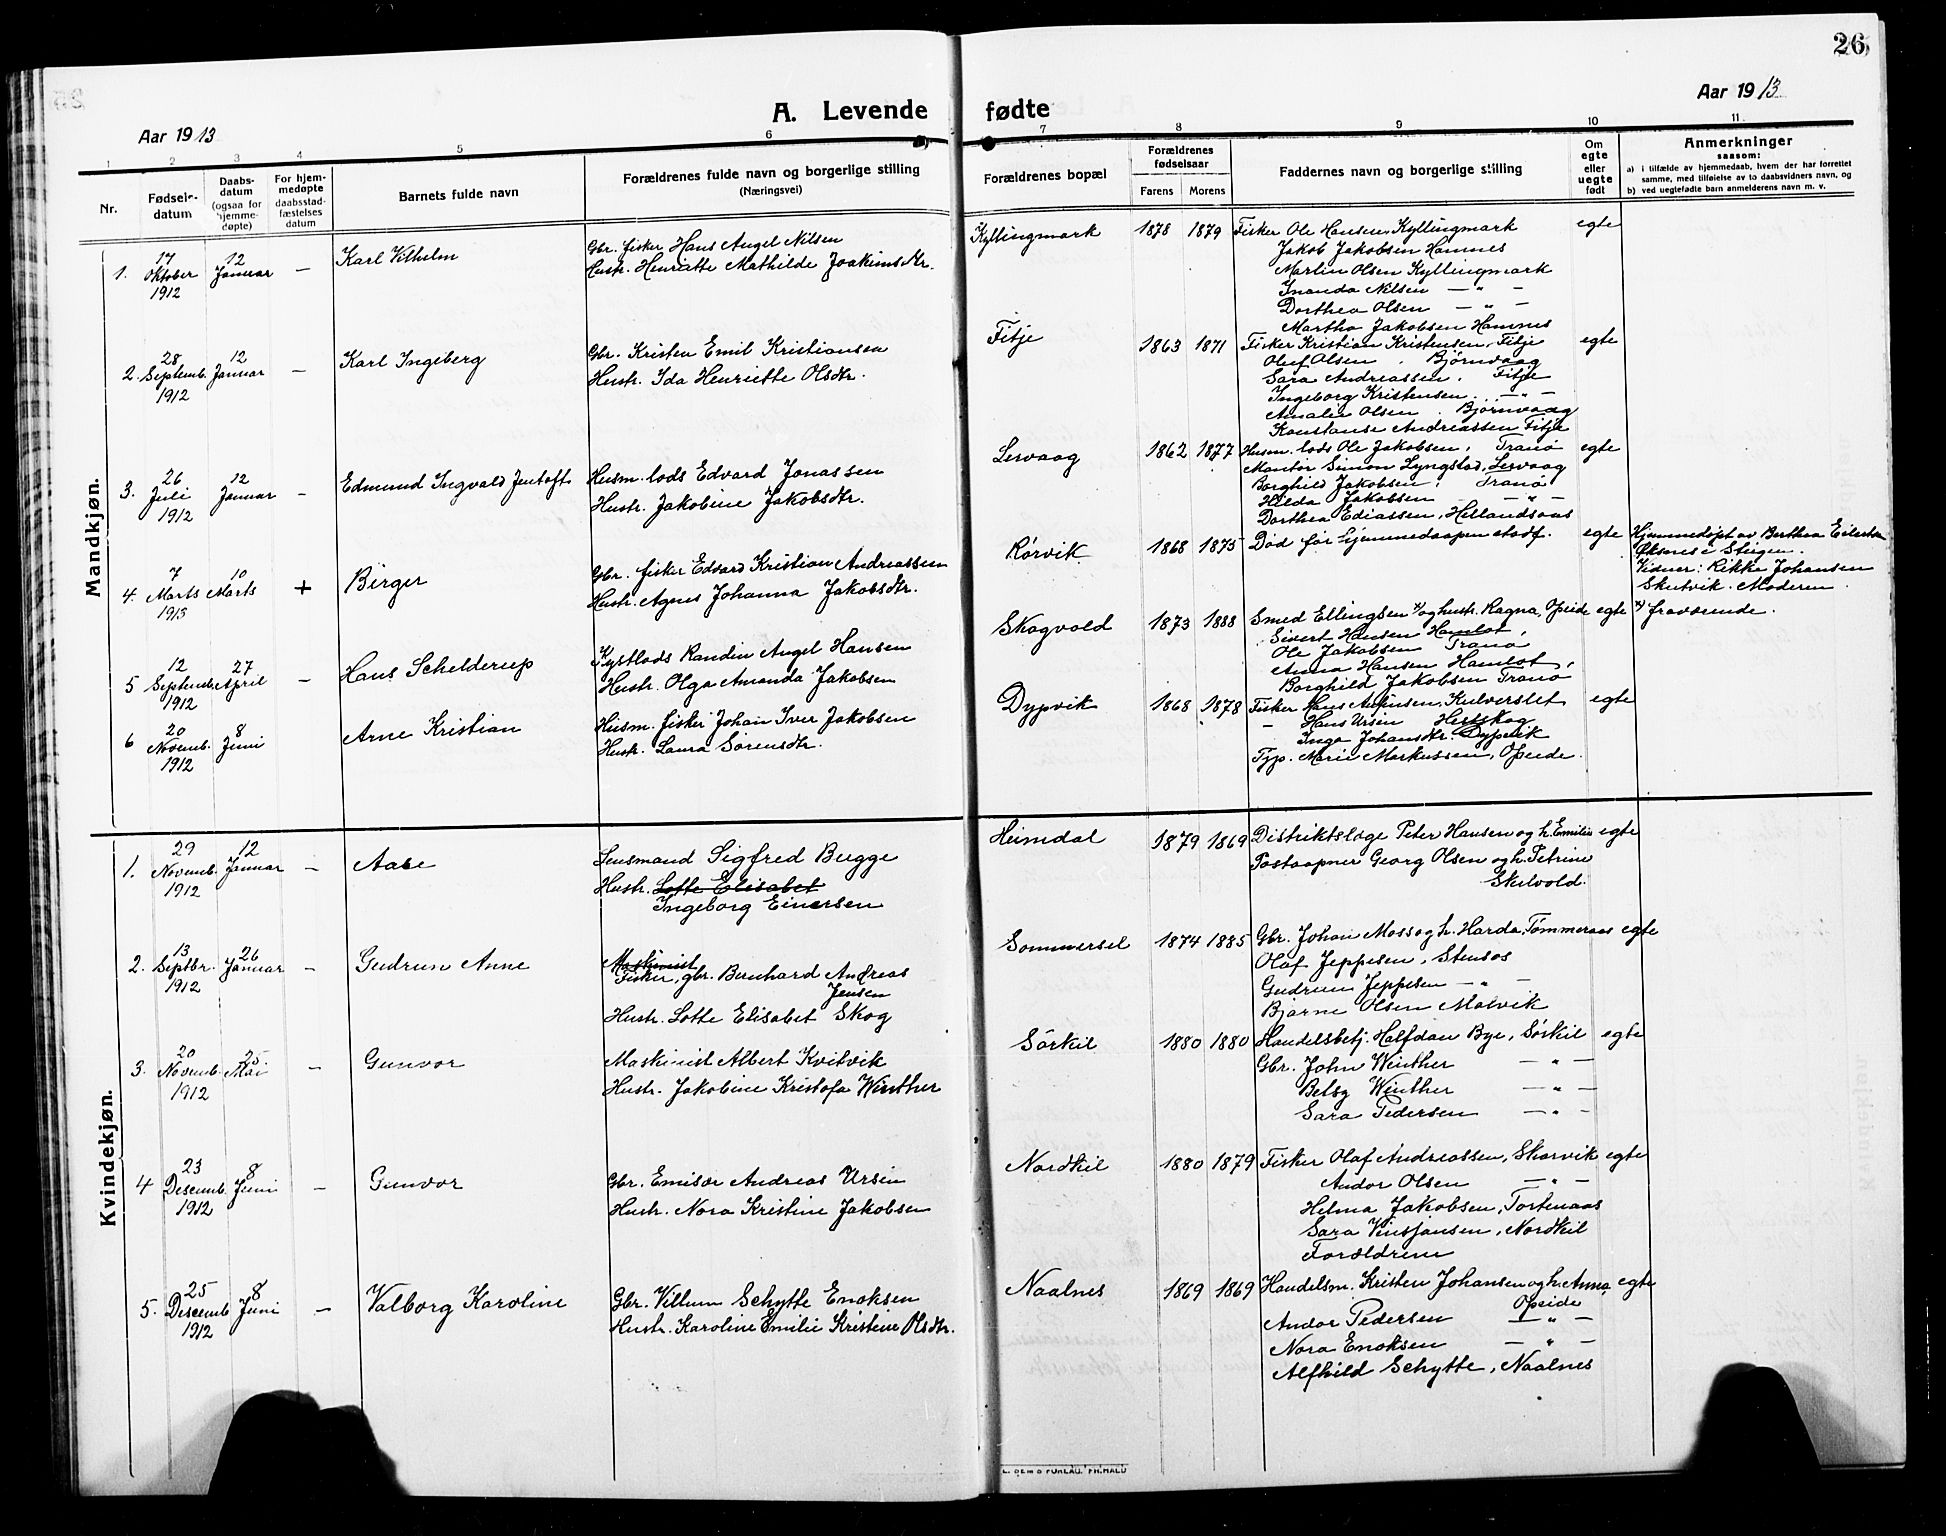 26
A. Levende fødte
Aar 1913
Aar 1913
1 2 3 4 5 6 7 8 9 10 11
Nr.
Fødsels-datum
Daabs-datum (ogsaa for hjemme-døpte)
For hjem-medøpte daabsstad-fæstelses datum
Barnets fulde navn
Forældrenes fulde navn og borgerlige stilling
(Næringsvei)
Forældrenes bopæl
Forældrenes fødselsaar
Farens Morens
Faddernes navn og borgerlige stilling
Om egte eller uegte født
Anmerkninger
saasom:
a) i tilfælde av hjemmedaab, hvem der har forrettet
samme, med tilføielse av to daabsvidners navn, og
b) ved uegtefødte barn anmelderens navn m. v.
Mandkjøn.
1. 17 Oktober 1912 12 Januar — Karl Vilhelm
Gbr. fisker Hans Angel Nilsen
Hustr. Henriette Mathilde Joakimsdtr.
Kyllingmark 1878 1879 Fisker Ole Hansen, Kyllingmark egte
Jakob Jakobsen Hamnes
Martin Olsen Kyllingmark
Inanda Nilsen — " —
Dorthea Olsen — " —
Martha Jakobsen Hamnes
2. 28 Septemb. 1912 12 Januar — Karl Ingeberg
Gbr. Kristen Emil Kristiansen
Hustr. Ida Henriette Olsdtr.
Fitje 1863 1871 Fisker Kristian Kristensen, Fitje egte
Oluf Olsen . Bjørnvaag
Sara Andreassen. Fitje
Ingeborg Kristensen . — " —
Amalie Olsen . Bjørnvaag
Konstanse Andreassen Fitje
3. 26 Juli 1912 12 Januar — Edmund Ingvald Jentoft
Husm. lods Edvard Jonassen
Hustr. Jakobine Jakobsdtr.
Lervaag 1862 1877 Husm. lods Ole Jakobsen, Tranø egte
Montør Simon Lyngstad, Lervaag
Borghild Jakobsen, Tranø
Hilda Jakobsen — " —
Dorthea Ediassen, Hellandsaas
4. 7 Marts 1913 10 Marts + Birger
Gbr. fisker Edvard Kristian Andreassen
Hustr. Agnes Johanna Jakobsdtr.
Rørvik 1868 1875 Død før hjemmedaapen stadf. egte
Hjemmedøpt av Berthea
Øksnes i Steigen.
Vidner: Rikke Johansen
Skutvik. Moderen
5 12 Septemb. 1912 27 April — Hans Schelderup
Kystlods Randin Angel Hansen
Hustr. Olga Amanda Jakobsen
Skogvold 1873 1888 Smed Ellingsen x/ og hustr. Ragna, Opeide egte x/ fraværende.
Sivert Hansen Hamlot,
Ole Jakobsen Tranø
Anna Hansen Hamlot,
Borghild Jakobsen Tranø
6 20 Novemb. 1912 8 Juni Arne Kristian
Husm. fisker Johan Iver Jakobsen
Hustr. Laura Sørensdtr.
Dypvik 1868 1878 Fisker Hans Antinsen, Kulverslet egte
— Hans Ursin Hestskog
Inga Johansdtr. Dypvik
Typ. Marie Markussen, Opeide.
Kvindekjøn.
1. 29 Novemb. 1912 12 Januar — Aase
Lensmand Sigfred Bugge
Hustr. Lotte Elisabet
Ingeborg Einersen
Heimdal 1879 1869 Distriktslæge Peter Hansen og h. Emilie egte
Postaapner Georg Olsen og h. Petrine
Skilvold.
2. 13 Septbr. 1912 26 Januar — Gudrun Anne
Maskinist
Fisker, gbr. Bernhard Andreas
Jensen
Hustr. Lotte Elisabet Skog
Sommersel 1874 1885 Gbr. Johan Moss og h. Harda, Tømmeraas egte
Olaf Jeppesen, Stensos
Gudrun Jeppesen — " —
Bjarne Olsen Molvik
3. 20 Novemb. 1912 25 Mai — Gunvor
Maskinist Albert Kvitvik
Hustr. Jakobine Kristofa Winther
Sørkil 1880 1880 Handelsbetj. Halfdan Bye, Sørkil egte
Gbr. John Winther — " —
Betsy Winther — " —
Sara Pedersen — " —
4 23 Desemb. 1912 8 Juni — Gunvor
Gbr. Emisær Andreas Ursin
Hustr. Nora Kristine Jakobsen
Nordkil 1880 1879 Fisker Olaf Andreassen, Skarvik egte
Andor Olsen — " —
Helma Jakobsen, Tortenaas
Sara Vinsjansen, Nordkil
Forældrene
5. 25 Desemb. 1912 8 Juni — Valborg Karoline
Gbr. Villum Schytte Enoksen
Hustr. Karoline Emilie Kristine Olsdtr.
Naalnes 1869 1869 Handelsm. Kristen Johansen og h. Anna egte
Opeide
Andor Pedersen — " —
Nora Enoksen — " —
Alfhild Schytte, Naalnes